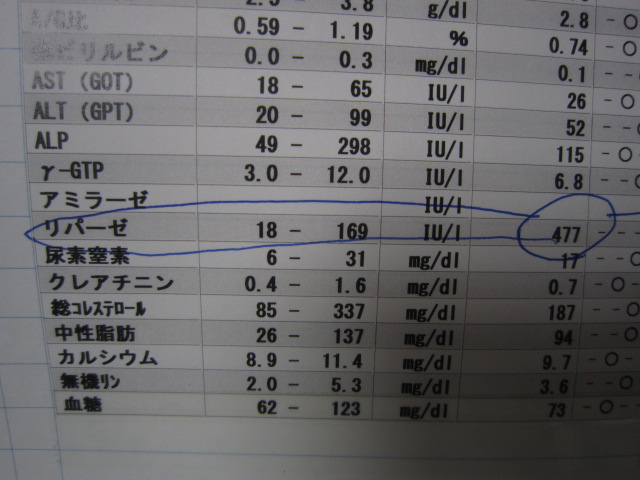 3.8 g/dl 2.8 - ○
A/G比 0.59 - 1.19 % 0.74 - ○
ビリルビン 0.0 - 0.3 mg/dl 0.1 - -
AST (GOT) 18 - 65 IU/l 26 - ○
ALT (GPT) 20 - 99 IU/l 52 - - ○
ALP 49 - 298 IU/l 115 - ○
γ-GTP 3.0 - 12.0 IU/l 6.8 - - ○
アミラーゼ IU/l
リパーゼ 18 - 169 IU/l 477 - - -
尿素窒素 6 - 31 mg/dl 17 - - ○
クレアチニン 0.4 - 1.6 mg/dl 0.7 - ○ -
総ｺﾚｽﾃﾛｰﾙ 85 - 337 mg/dl 187 - - ○
中性脂肪 26 - 137 mg/dl 94 - - ○
カルシウム 8.9 - 11.4 mg/dl 9.7 - ○ -
無機ﾘﾝ 2.0 - 5.3 mg/dl 3.6 - - ○
血糖 62 - 123 mg/dl 73 - ○ -